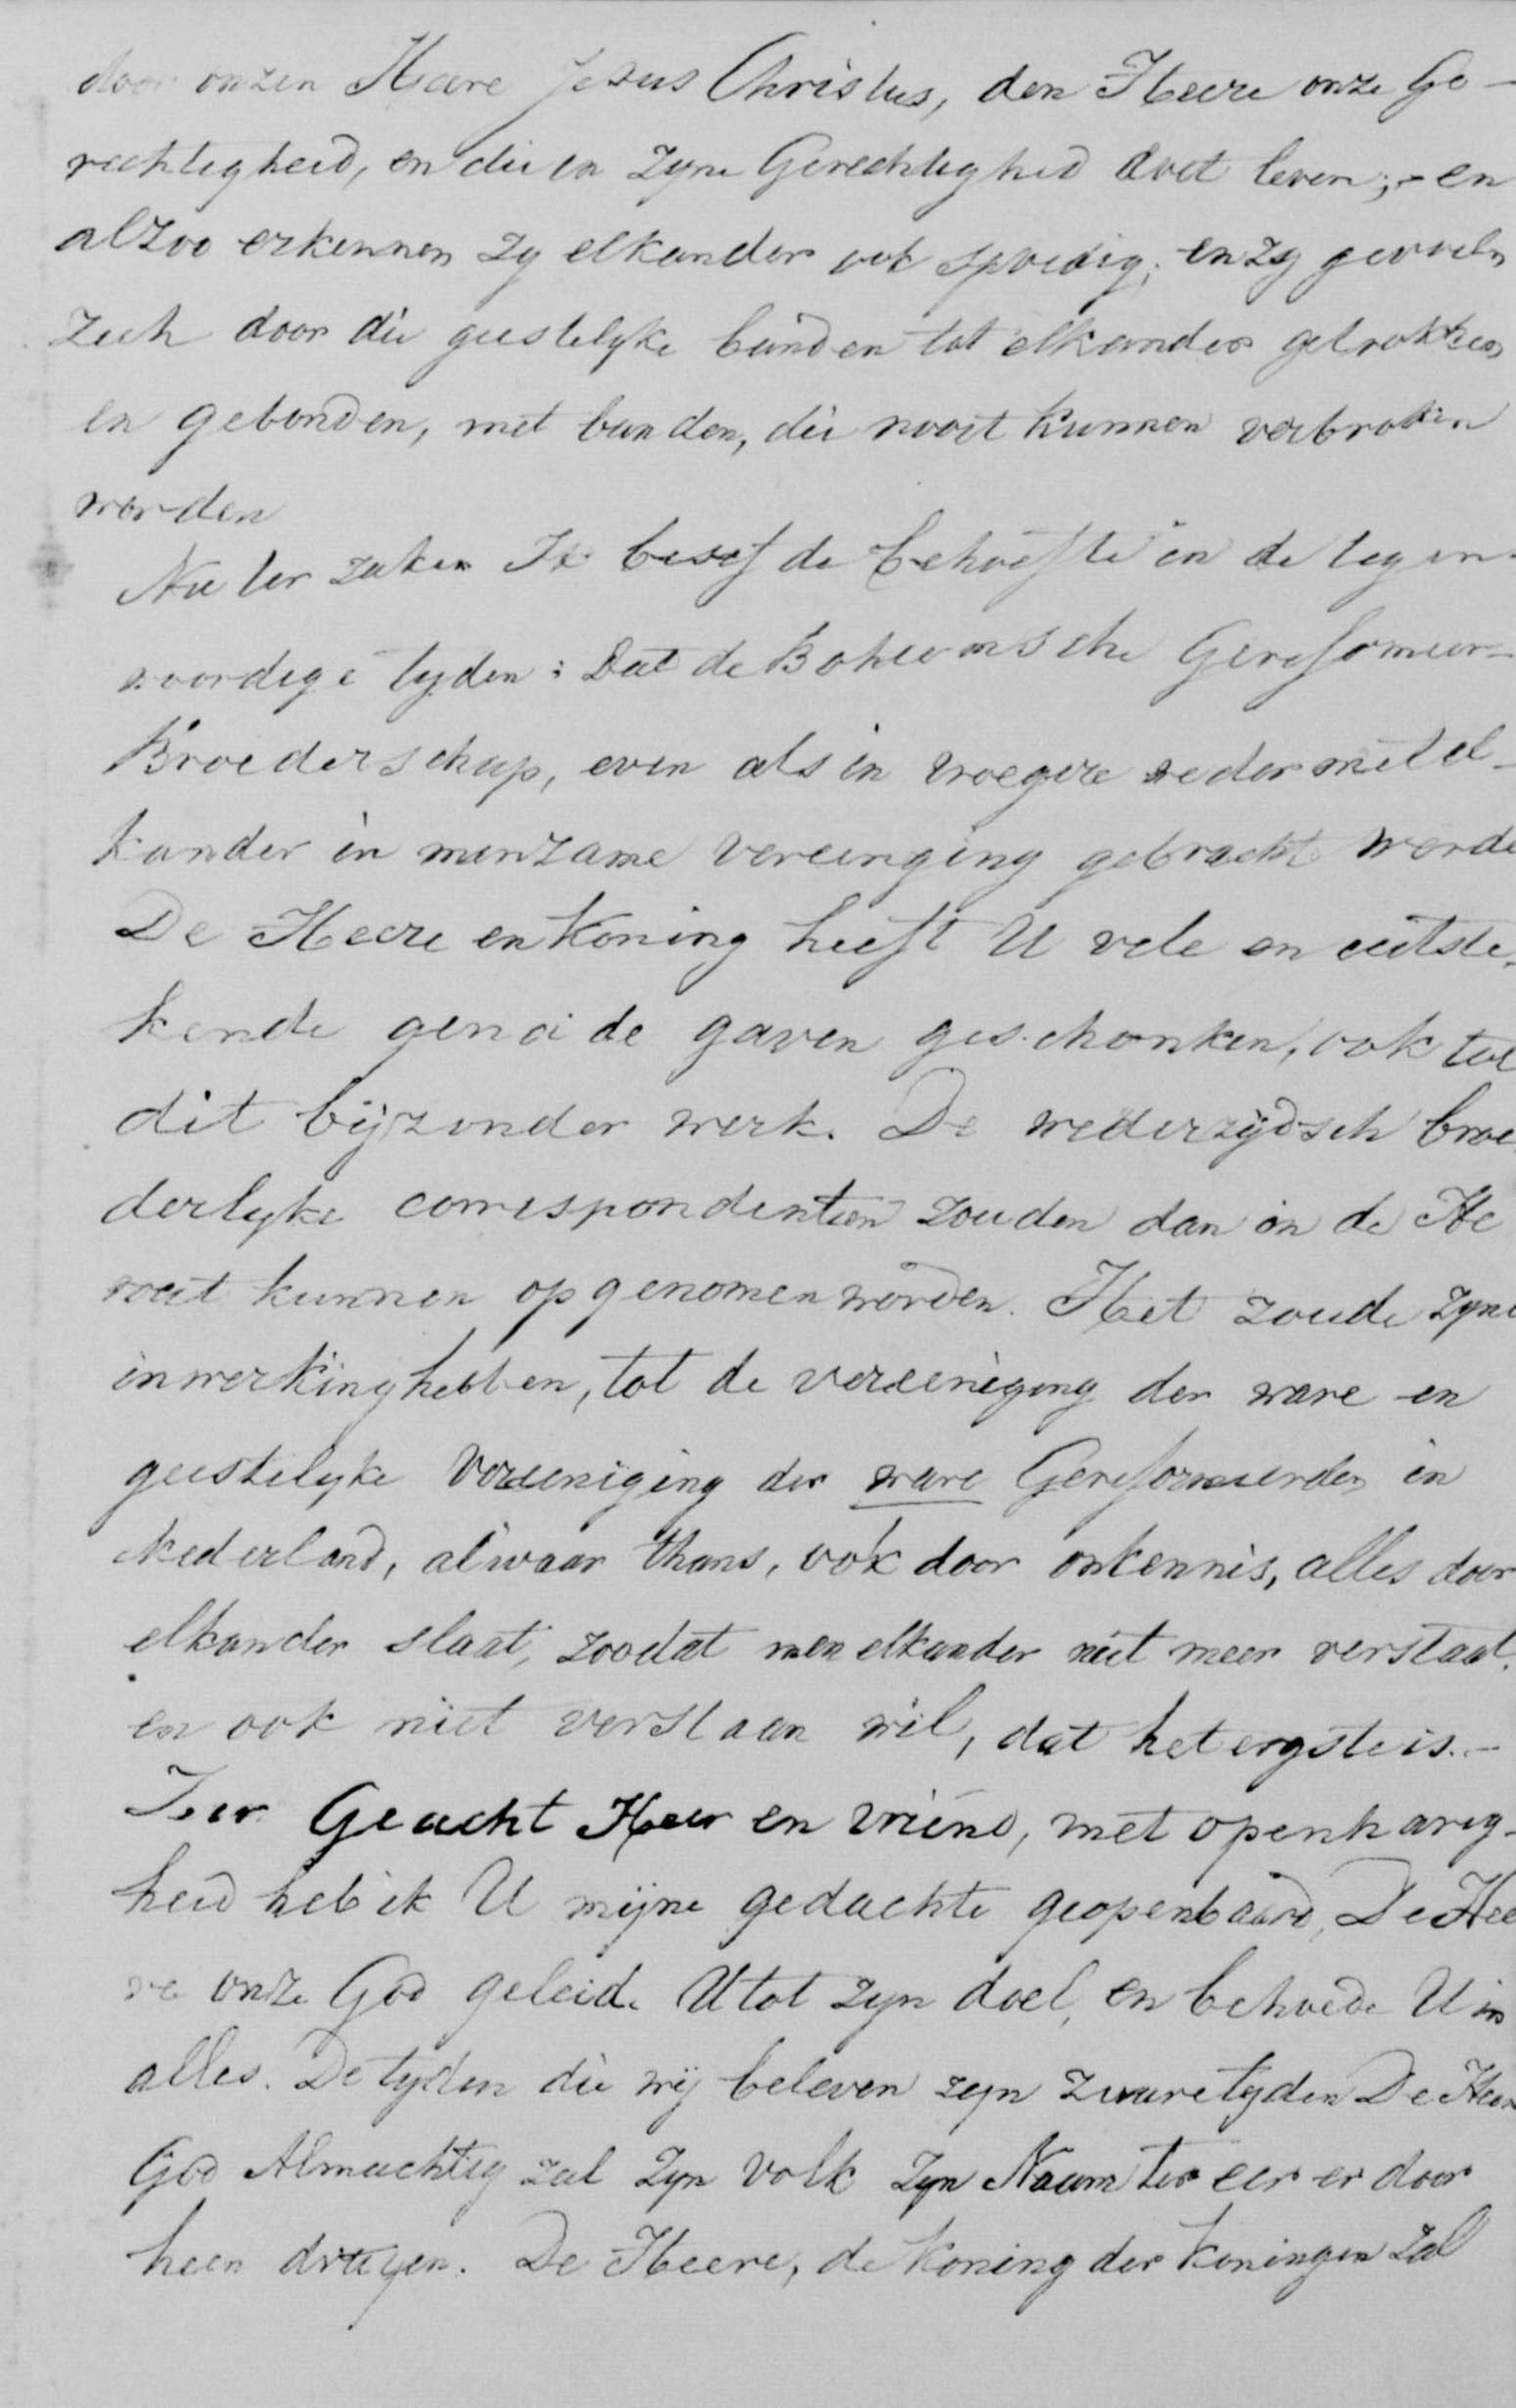 door onzen Heere Jesus Christus, den Heere onze Ge-
rechtigheid, en die in Zyne Gerechtigheid doet leven; - en
alzoo erkennen zy elkander ook spoedig; en zy gevoelen
zich door die geestelyke banden tot elkander getrokken
en gebonden, met banden, die nooit kunnen verbroken
worden
Nu ter zaken Ik besef de behoefte in de tegen-
woordige tyden: Dat de Boheemsche Gereformeer-
Broederschap, even als in vroegere weder met el-
kander in minzame vereeniging gebracht worde
De Heere en Koning heeft U vele en uitste-
kende genade gaven geschonken, ook tot
dit bijzonder werk. De wederzijdsch broe
derlyke correspondentien zouden dan in de He
raut kunnen opgenomen worden. Het zoude zyne
inwerking hebben, tot de vereeniging der ware en
geestelyke Vereeniging der ware Gereformeerden in
Nederland, alwaar thans, ook door onkennis, alles door
elkander slaat, zoodat men elkander niet meer verstaat,
en ook niet verstaan wil, dat het ergste is. -
Zeer Geacht Heer en vriend, met openharig-
heid heb ik U mijne gedachte geopenbaard, De Hee
re onze God geleide U tot Zyn doel, en behoede U in
alles. De tyden die wij beleven zyn zware tyden De Heere
God Almachtig zal Zyn volk Zyn Naam ter eer er door
heen dragen. De Heere, de Koning der Koningen zal